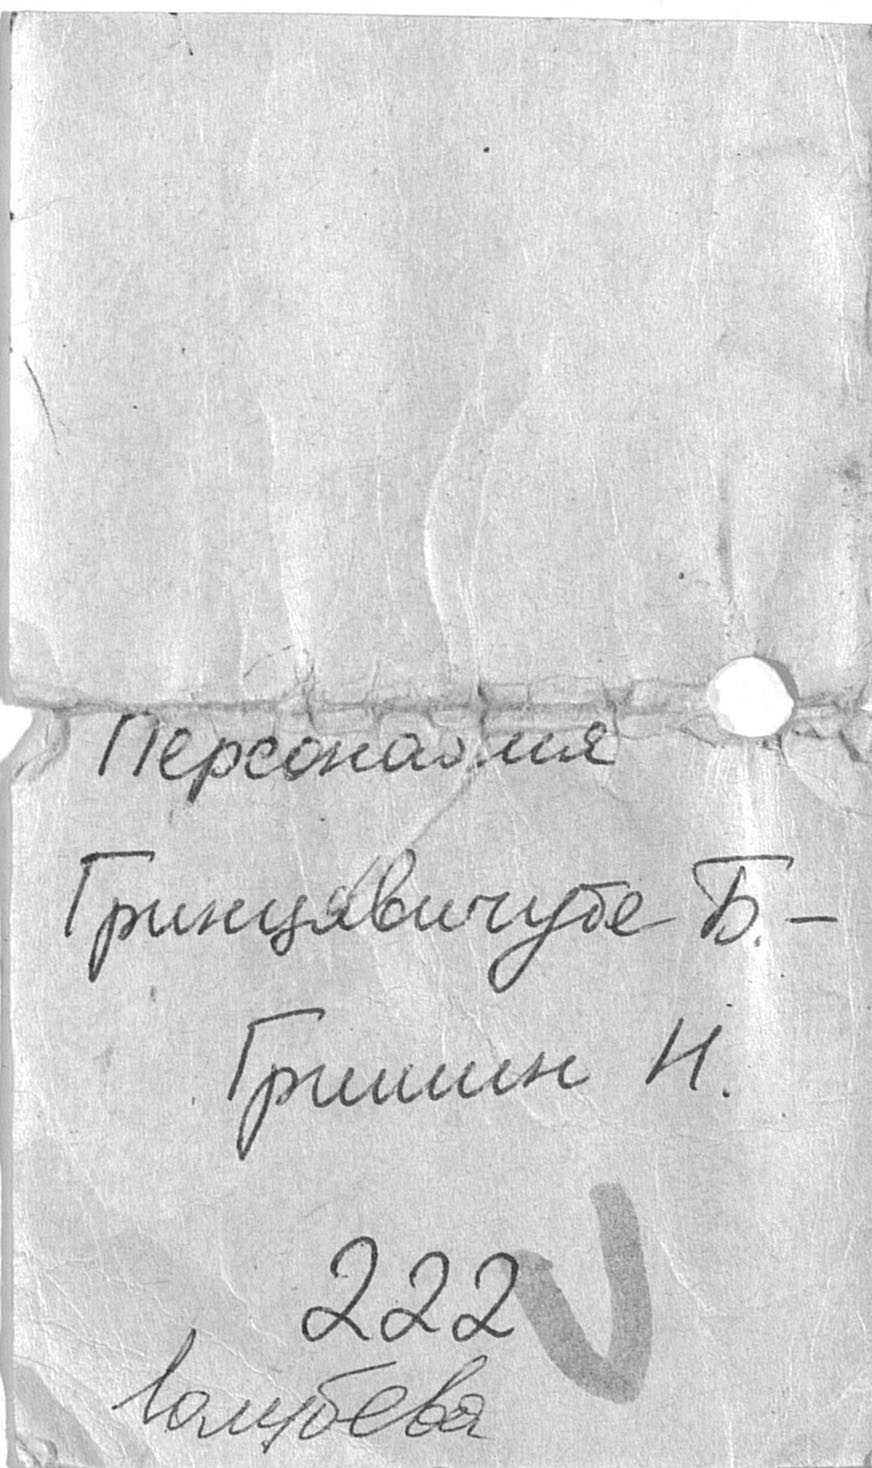 Персоналия
Гринцявичуте Б. –
Гришин Н.
222
Голубева